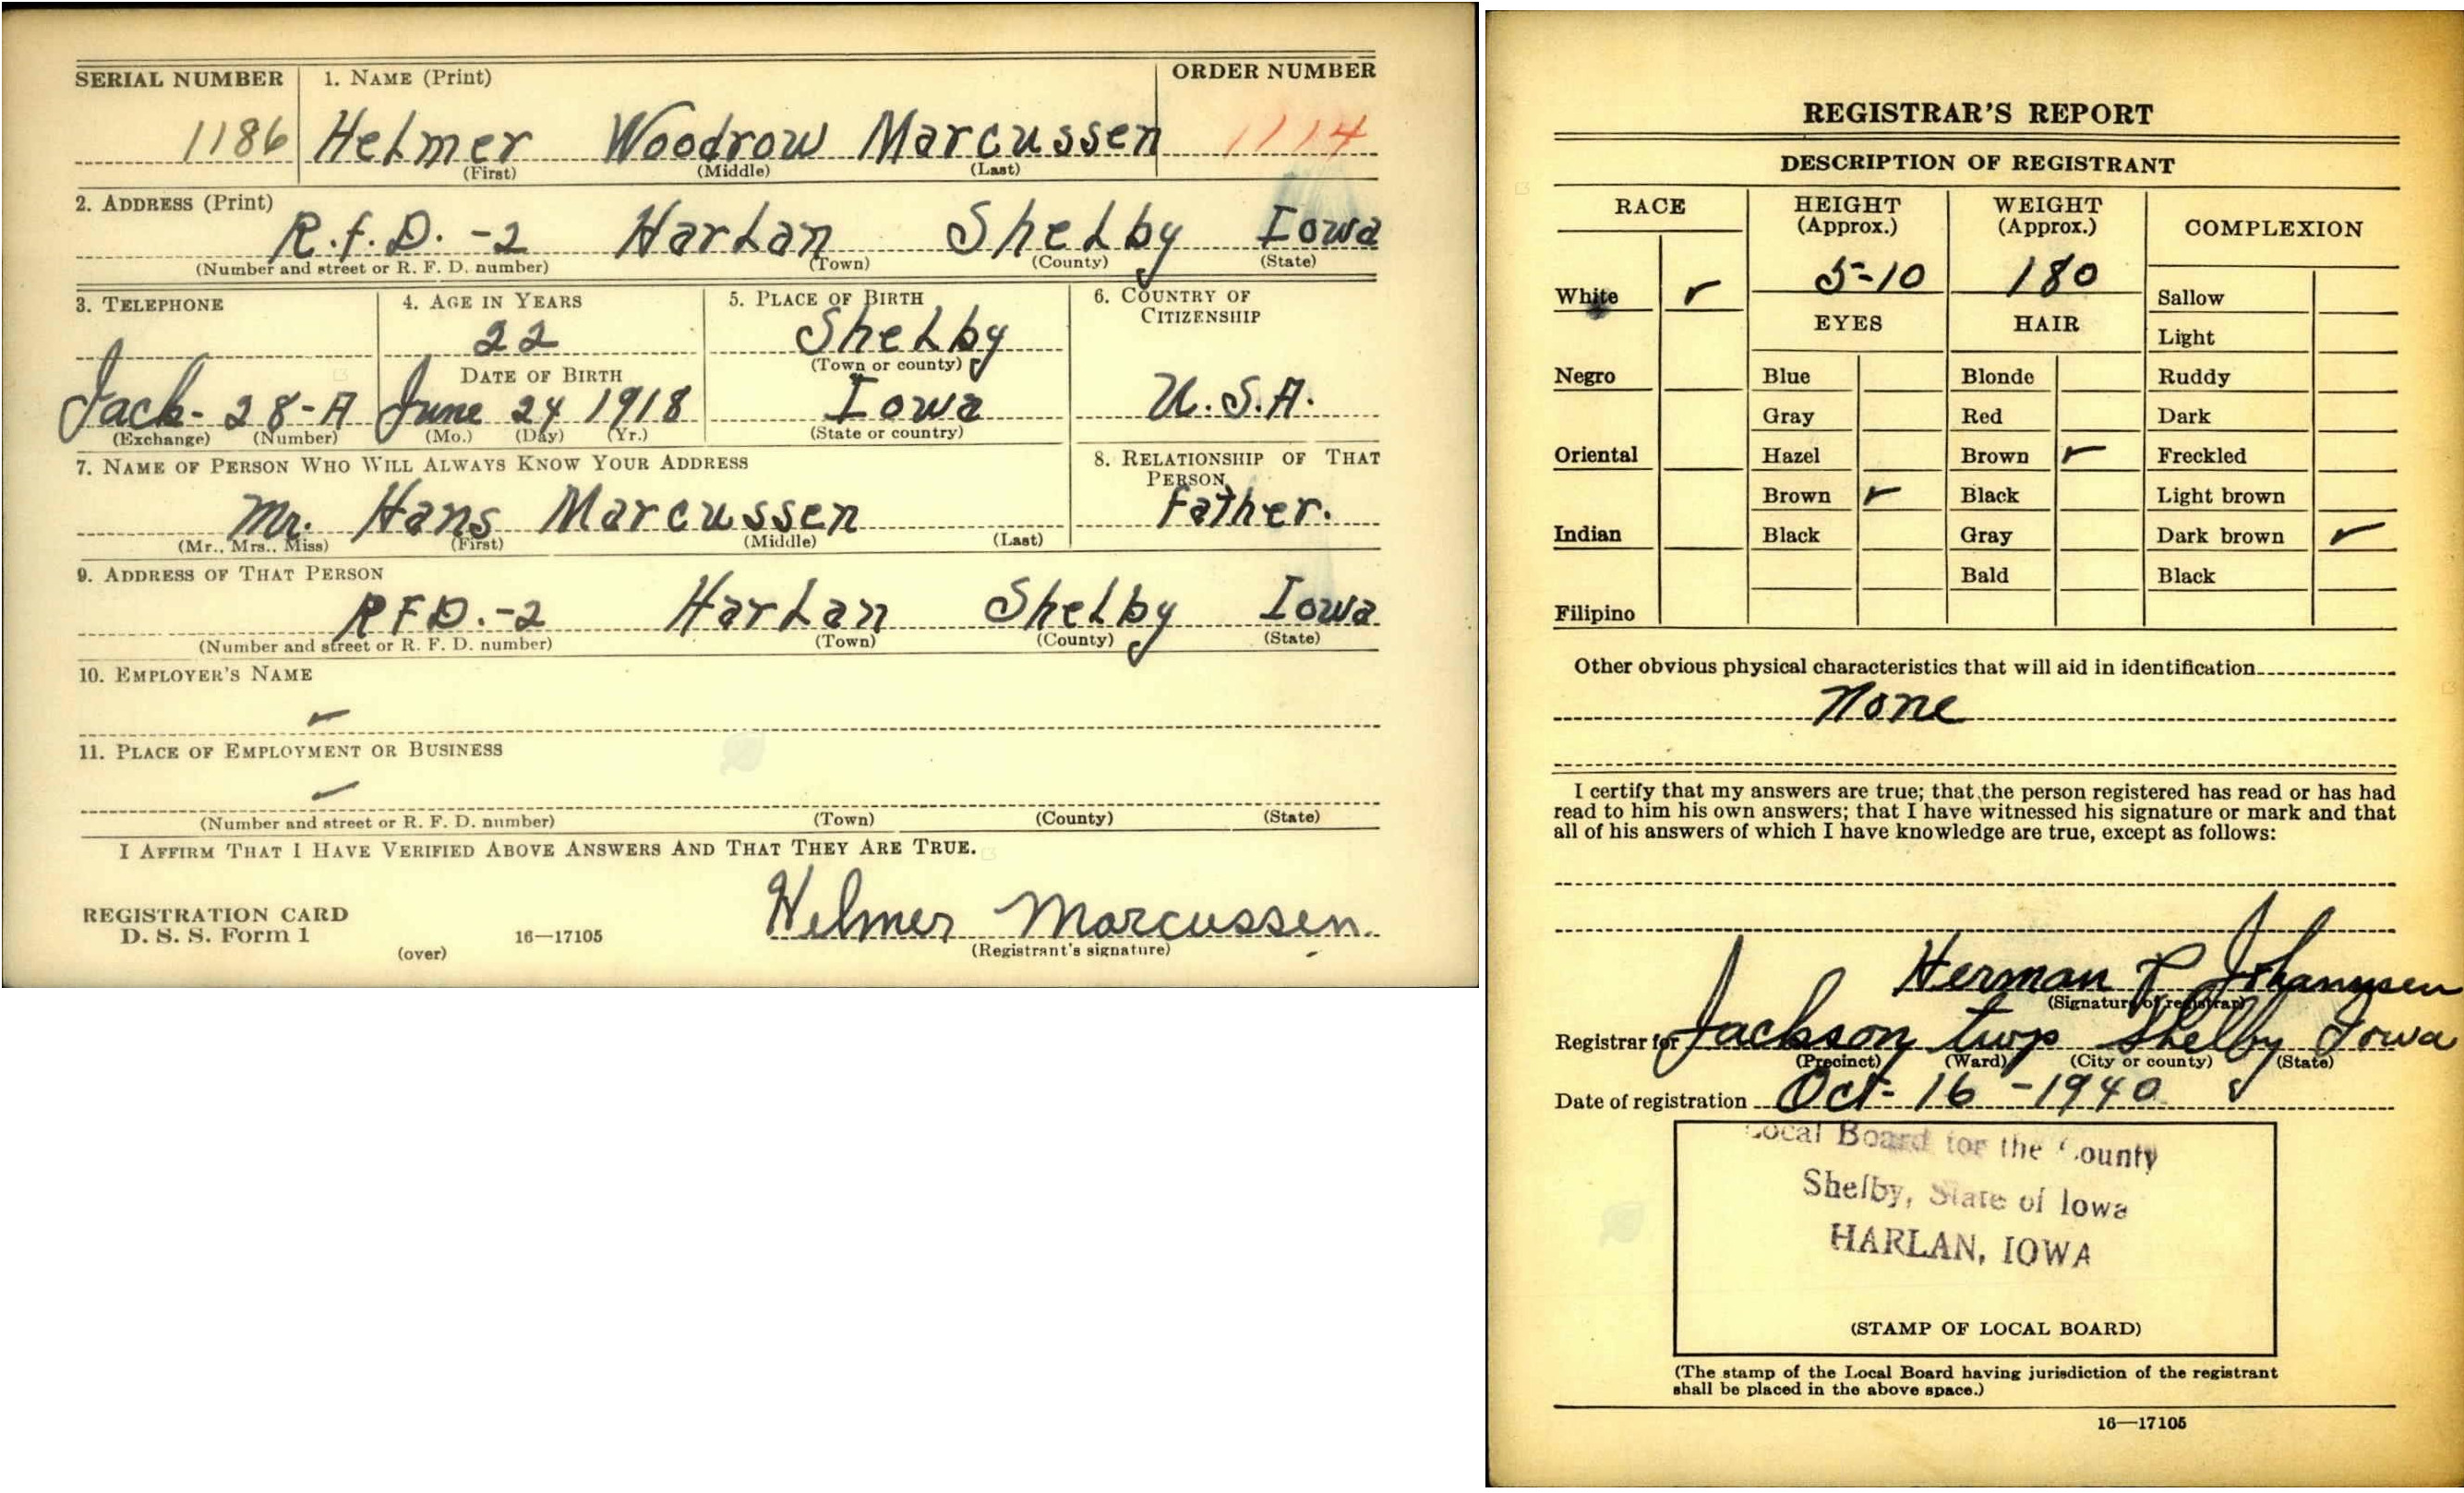 SERIAL NUMBER 1. NAME (Print) ORDER NUMBER
1186 Helmer Woodrow Marcussen 1114
(First) (Middle) (Last)
2. ADDRESS (Print)
R.f.D. -2 Harlan Shelby Iowa
(Number and street or R. F. D. number) (Town) (County) (State)
3. TELEPHONE 4. AGE IN YEARS 5. PLACE OF BIRTH 6. COUNTRY OF CITIZENSHIP
22 Shelby
(Town or county)
DATE OF BIRTH
Jack- 28-A June 24 1918 Iowa U.S.A.
(Exchange) (Number) (Mo.) (Day) (Yr.) (State or country)
7. NAME OF PERSON WHO WILL ALWAYS KNOW YOUR ADDRESS 8. RELATIONSHIP OF THAT PERSON
Mr. Hans Marcussen Father.
(Mr., Mrs., Miss) (First) (Middle) (Last)
9. ADDRESS OF THAT PERSON
RFD.-2 Harlan Shelby Iowa
(Number and street or R. F. D. number) (Town) (County) (State)
10. EMPLOYER'S NAME
11. PLACE OF EMPLOYMENT OR BUSINESS
(Number and street or R. F. D. number) (Town) (County) (State)
I AFFIRM THAT I HAVE VERIFIED ABOVE ANSWERS AND THAT THEY ARE TRUE.
Helmer Marcussen
REGISTRATION CARD
D. S. S. Form 1 16—17105
(over) (Registrant's signature)
REGISTRAR'S REPORT
DESCRIPTION OF REGISTRANT
RACE HEIGHT (Approx.) WEIGHT (Approx.) COMPLEXION
White ✓ 5-10 180 Sallow
EYES HAIR Light
Negro Blue Blonde Ruddy
Gray Red Dark
Oriental Hazel Brown ✓ Freckled
Brown ✓ Black Light brown
Indian Black Gray Dark brown ✓
Bald Black
Filipino
Other obvious physical characteristics that will aid in identification
None
I certify that my answers are true; that the person registered has read or has had
read to him his own answers; that I have witnessed his signature or mark and that
all of his answers of which I have knowledge are true, except as follows:
Herman P Johannsen
(Signature of registrar)
Registrar for Jackson twp Shelby Iowa
(Precinct) (Ward) (City or county) (State)
Date of registration Oct- 16 -1940
Local Board for the County
Shelby, State of Iowa
HARLAN, IOWA
(STAMP OF LOCAL BOARD)
(The stamp of the Local Board having jurisdiction of the registrant
shall be placed in the above space.)
16—17105